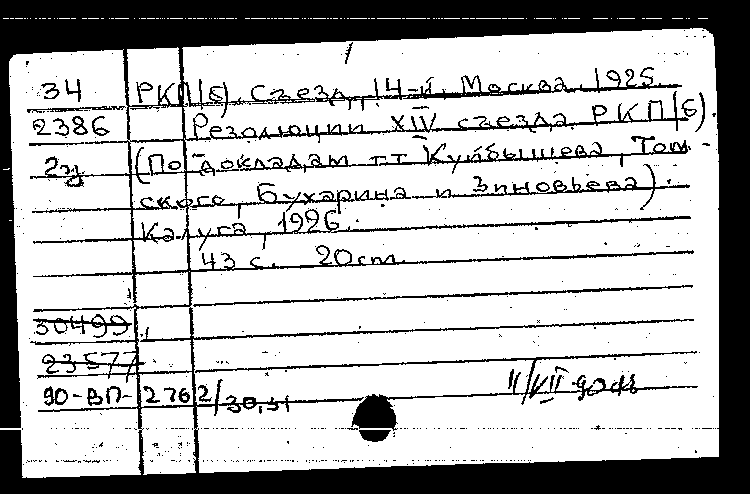 34 РКП(б). Съезд, 14-й. Москва. 1925.
2386 Резолюции XIV съезда РКП(б).
2э (По докладам т.т. Куйбышева, Том-
ского, Бухарина и Зиновьева).
Калуга, 1926.
43 с. 20 cm.
30499
23577
90-ВП-2762/30,31